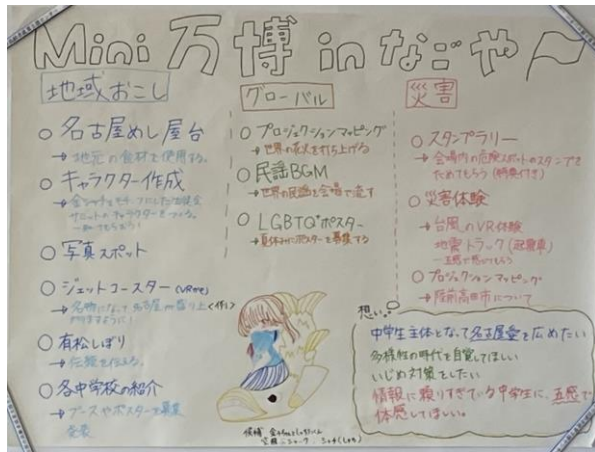 Mini 万博 in なごや
地域おこし
○ 名古屋めし屋台
→ 地元の食材を使用する。
○ キャラクター作成
→ 金シャチをモチーフにした
サミットのキャラクターをつくる。
○ 写真スポット
○ ジェットコースター (VRかも)
→ 名物になって名古屋が盛り上
○ 有松しぼり
→ 伝統を伝える。
○ 各中学校の紹介
→ ブースやポスターを募集
グローバル
○ プロジェクションマッピング
→ 世界の花火を打ち上げる
○ 民謡BGM
→ 世界の民謡を会場で流す
○ LGBTQ⁺ポスター
→ 夏休みにポスターを募集する
災害
○ スタンプラリー
→ 会場内の危険スポットのスタンプを
ためてもらう (特典付き)
○ 災害体験
→ 台風のVR体験
地震トラック (起震車)
○ プロジェクションマッピング
→ 陸前高田市について
想い
中学生主体となって名古屋愛を広めたい
多様性の時代を自覚してほしい
いじめ対策をしたい
情報に頼りすぎている中学生に、五感で
体感してほしい。
候補